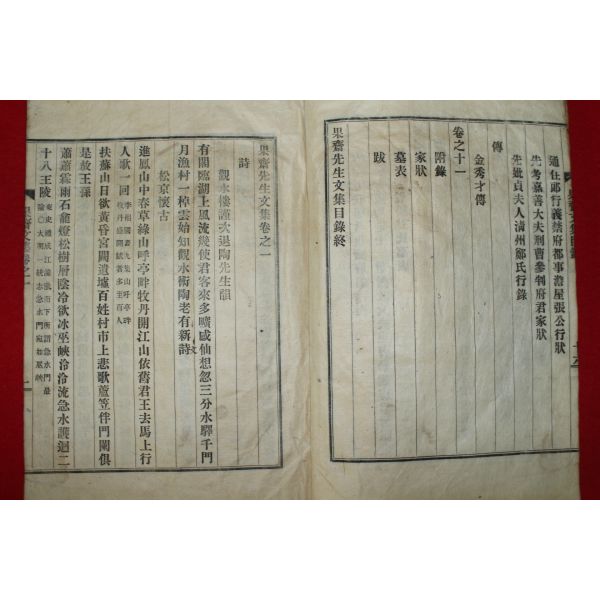 通仕郎行義禁府都事澹屋張公行狀
先考嘉善大夫刑曹參判府君家狀
先妣貞夫人淸州鄭氏行錄
傳
金秀才傳
卷之十一
附錄
家狀
墓表
跋
果齋先生文集目錄終
果齋先生文集卷之一
詩
觀水樓謹次退陶先生韻
有閣臨湖上風流幾使君客來多曠感仙想忽三分水驛千門
月漁村一棹雲始知觀水術陶老有新詩
松京懷古
進鳳山中春草綠山呼亭畔牧丹開江山依舊君王去馬上行
人歌一回
扶蘇山日欲黃昏宮闕遺墟百姓村市上悲歌蘆笠伴門闌俱
是故王孫
蕭蕭雲雨石龕燈松樹層陰冷欲冰巫峽冷冷流急水護迴二
十八王陵